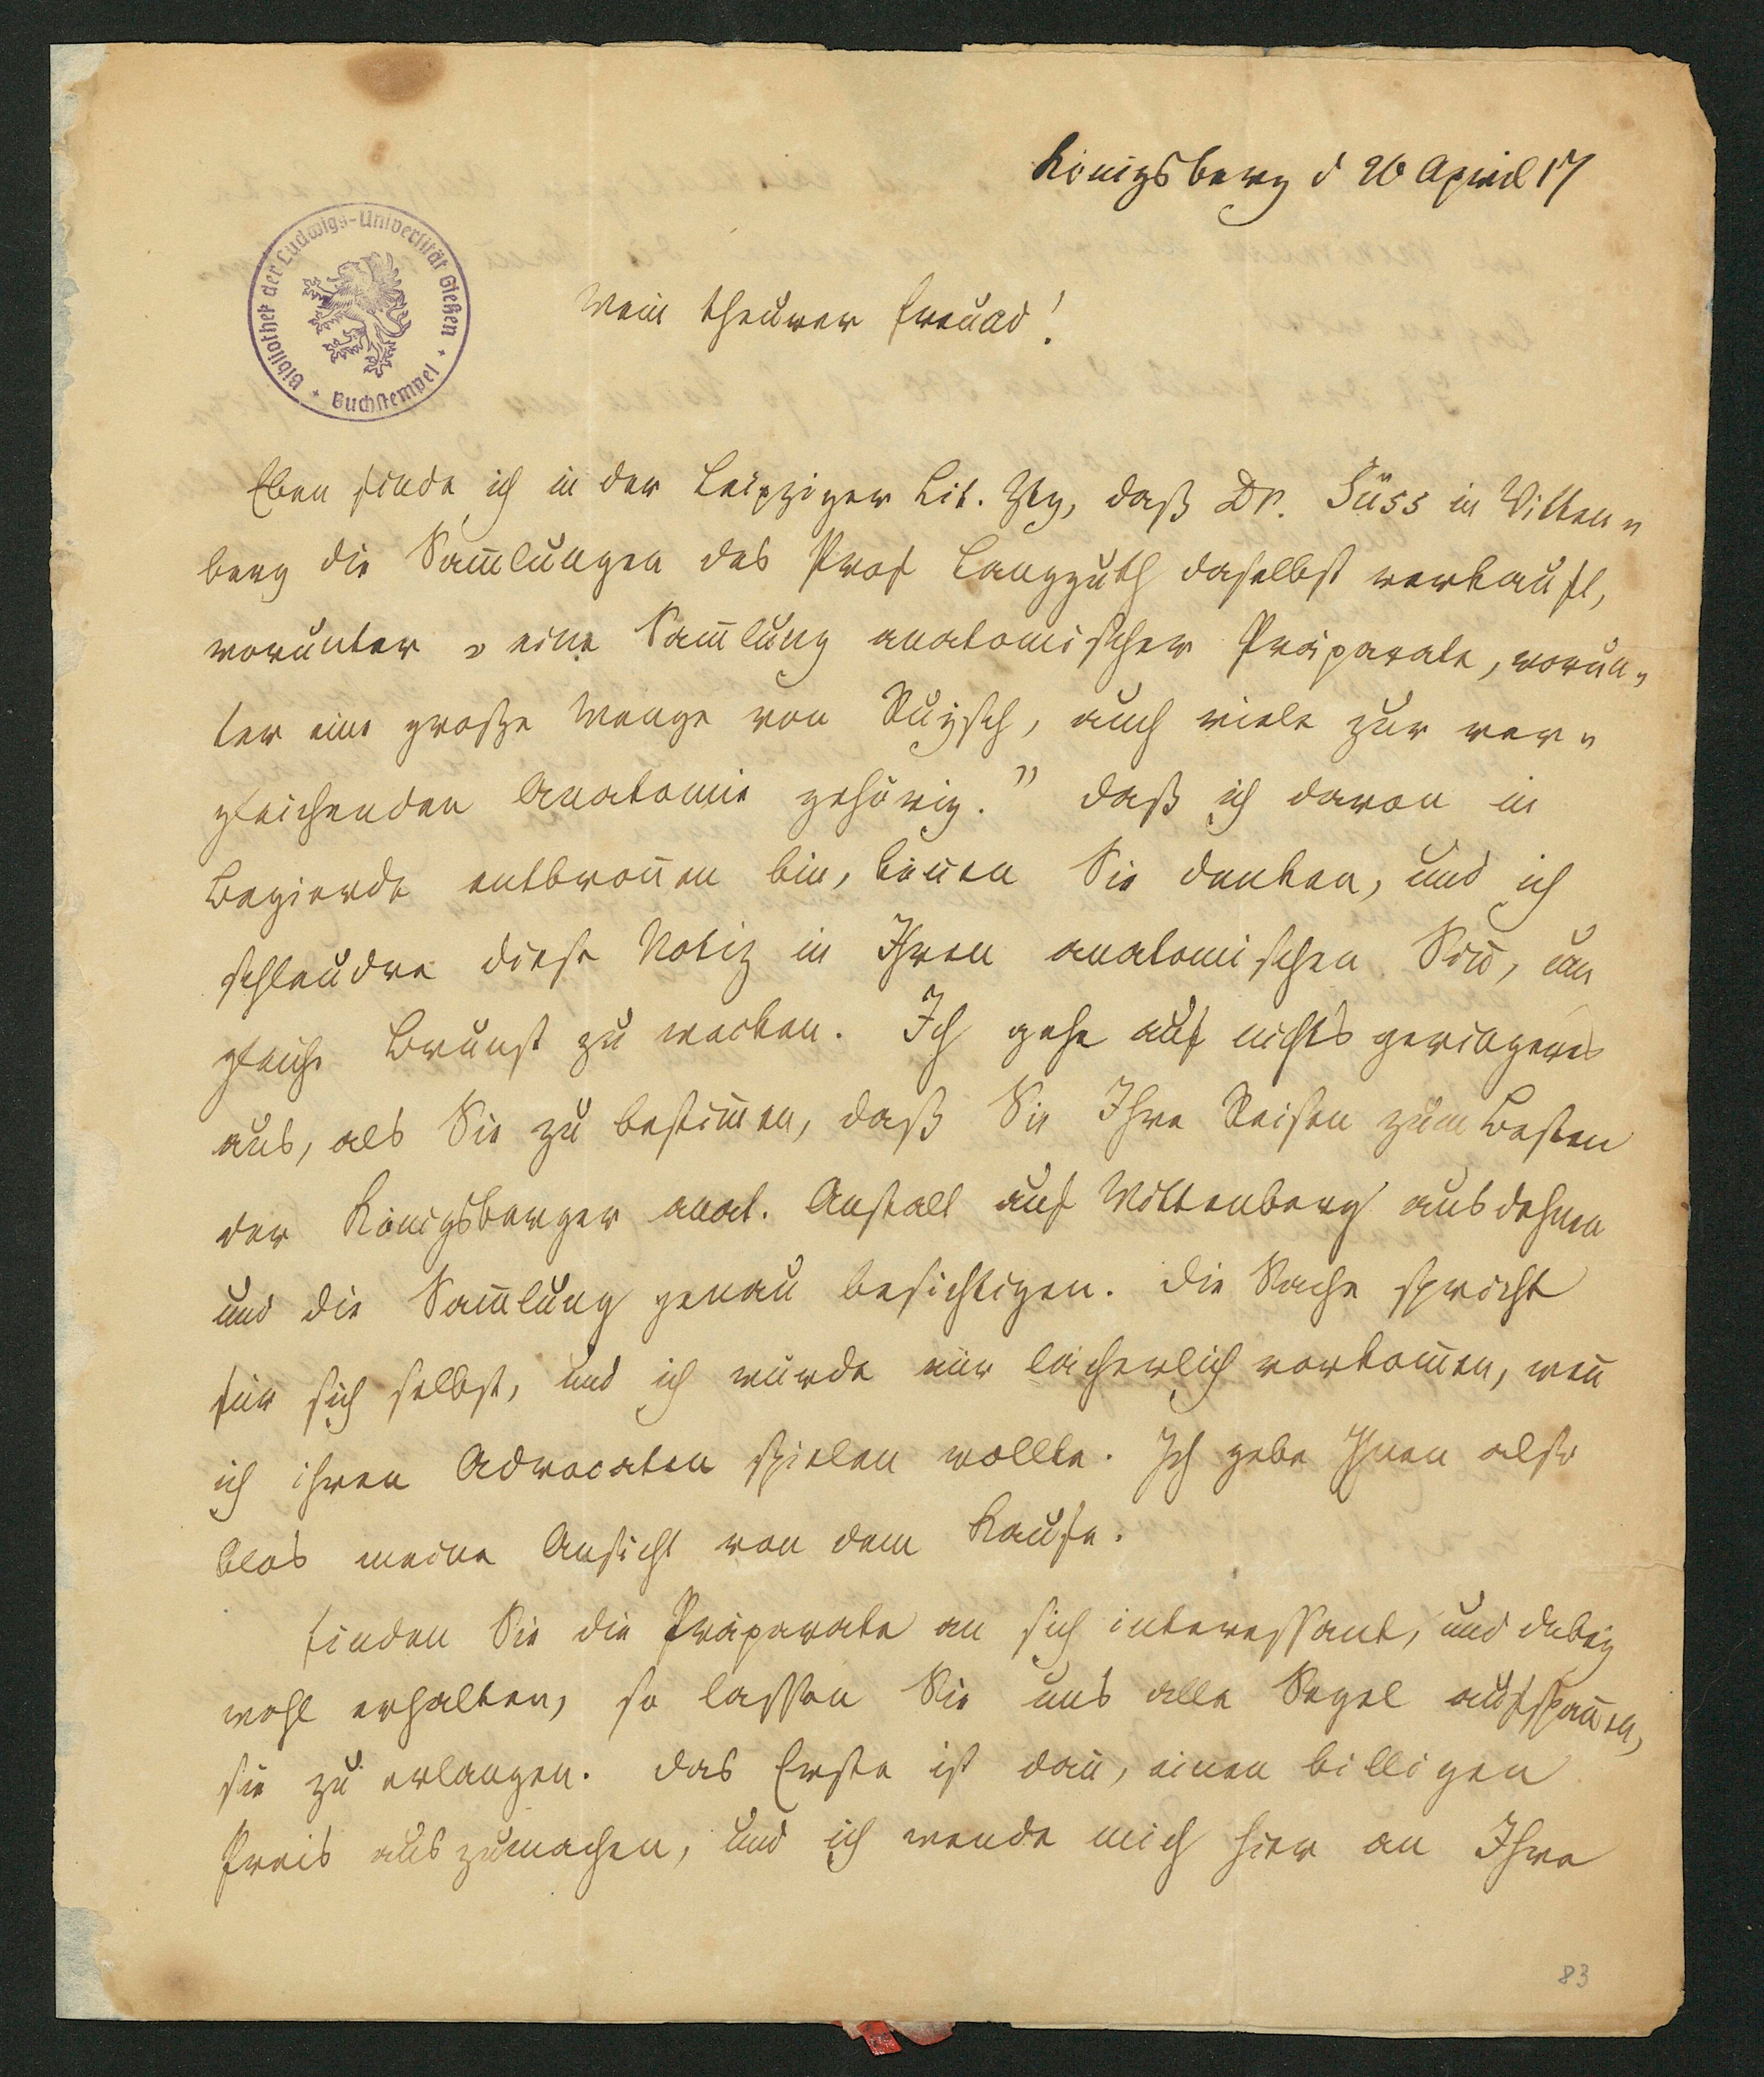 Königsberg d 26 April 17
Bibliothek der Ludwigs-Universität Gießen
Buchstempel
Mein theurer Freund!
Eben finde ich in der Leipziger Lit. Ztg, daß Dr. Süss in Witten-
berg die Sam̅lungen des Prof Langguth daselbst verkauft,
worunter „eine Sam̅lung anatomischer Präparate, worun-
ter eine große Menge von Ruysch, auch viele zur ver-
gleichenden Anatomie gehörig.” Daß ich davon in
Begierde entbron̅en bin, kön̅en Sie denken, und ich
schleudre diese Notiz in Ihren anatomischen Sin̅, um
gleiche Brunst zu wecken. Ich gehe auf nichts geringeres
aus, als Sie zu bestim̅en, daß Sie Ihre Reisen zum Besten
der Königsberger anat. Anstalt auf Wittenberg ausdehnen
und die Sam̅lung genau besichtigen. Die Sache spricht
für sich selbst, und ich würde mir lächerlich vorkom̅en, wen̅
ich ihren Advocaten spielen wollte. Ich gebe Ihnen also
blos meine Ansicht von dem Kaufe.
Finden Sie die Präparate an sich interessant, und dabey
wohl erhalten, so lassen Sie uns alle Segel aufspan̅en,
sie zu erlangen. Das Erste ist dan̅, einen billigen
Preis auszumachen, und ich wende mich hier an Ihre
83